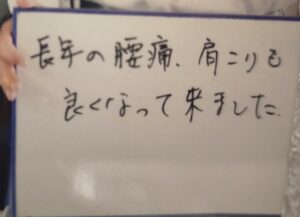 長年の腰痛、肩こりも
良くなって来ました。